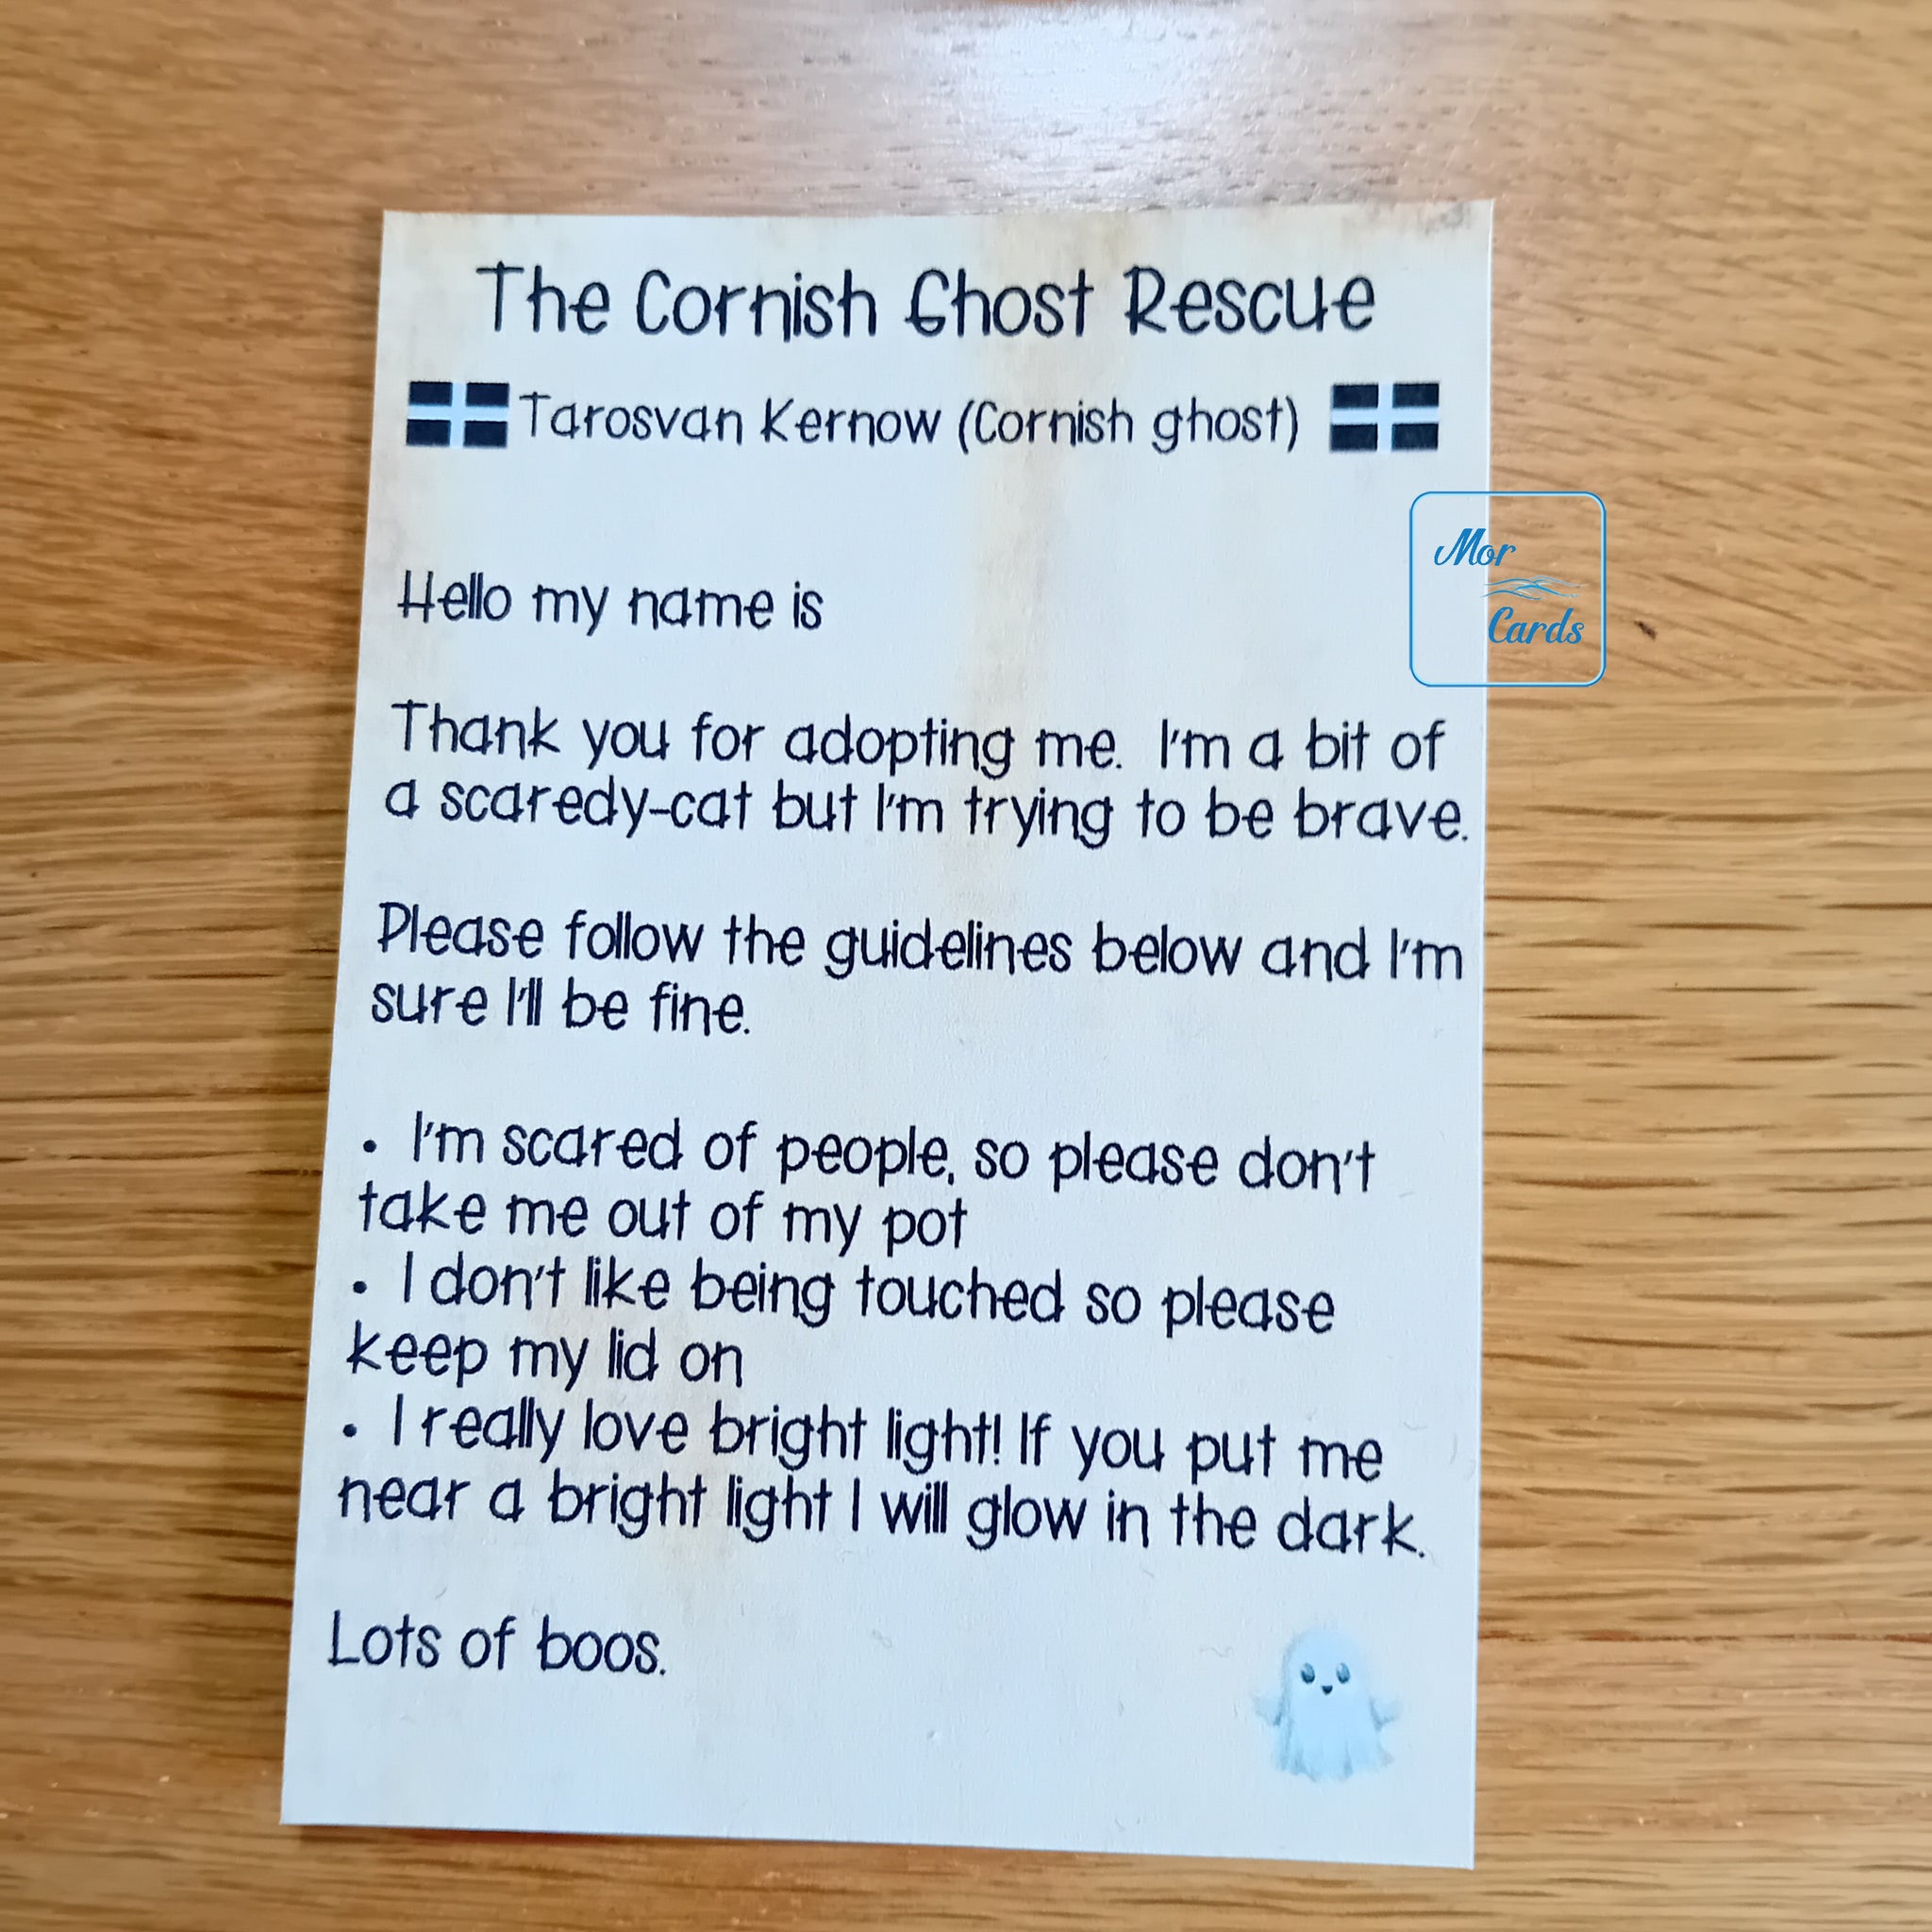 The Cornish Ghost Rescue
Tarosvan Kernow (Cornish ghost)
Mor
Cards
Hello my name is
Thank you for adopting me. I'm a bit of
a scaredy-cat but I'm trying to be brave.
Please follow the guidelines below and I'm
sure I'll be fine.
• I'm scared of people, so please don't
take me out of my pot
• I don't like being touched so please
keep my lid on
• I really love bright light! If you put me
near a bright light I will glow in the dark.
Lots of boos.